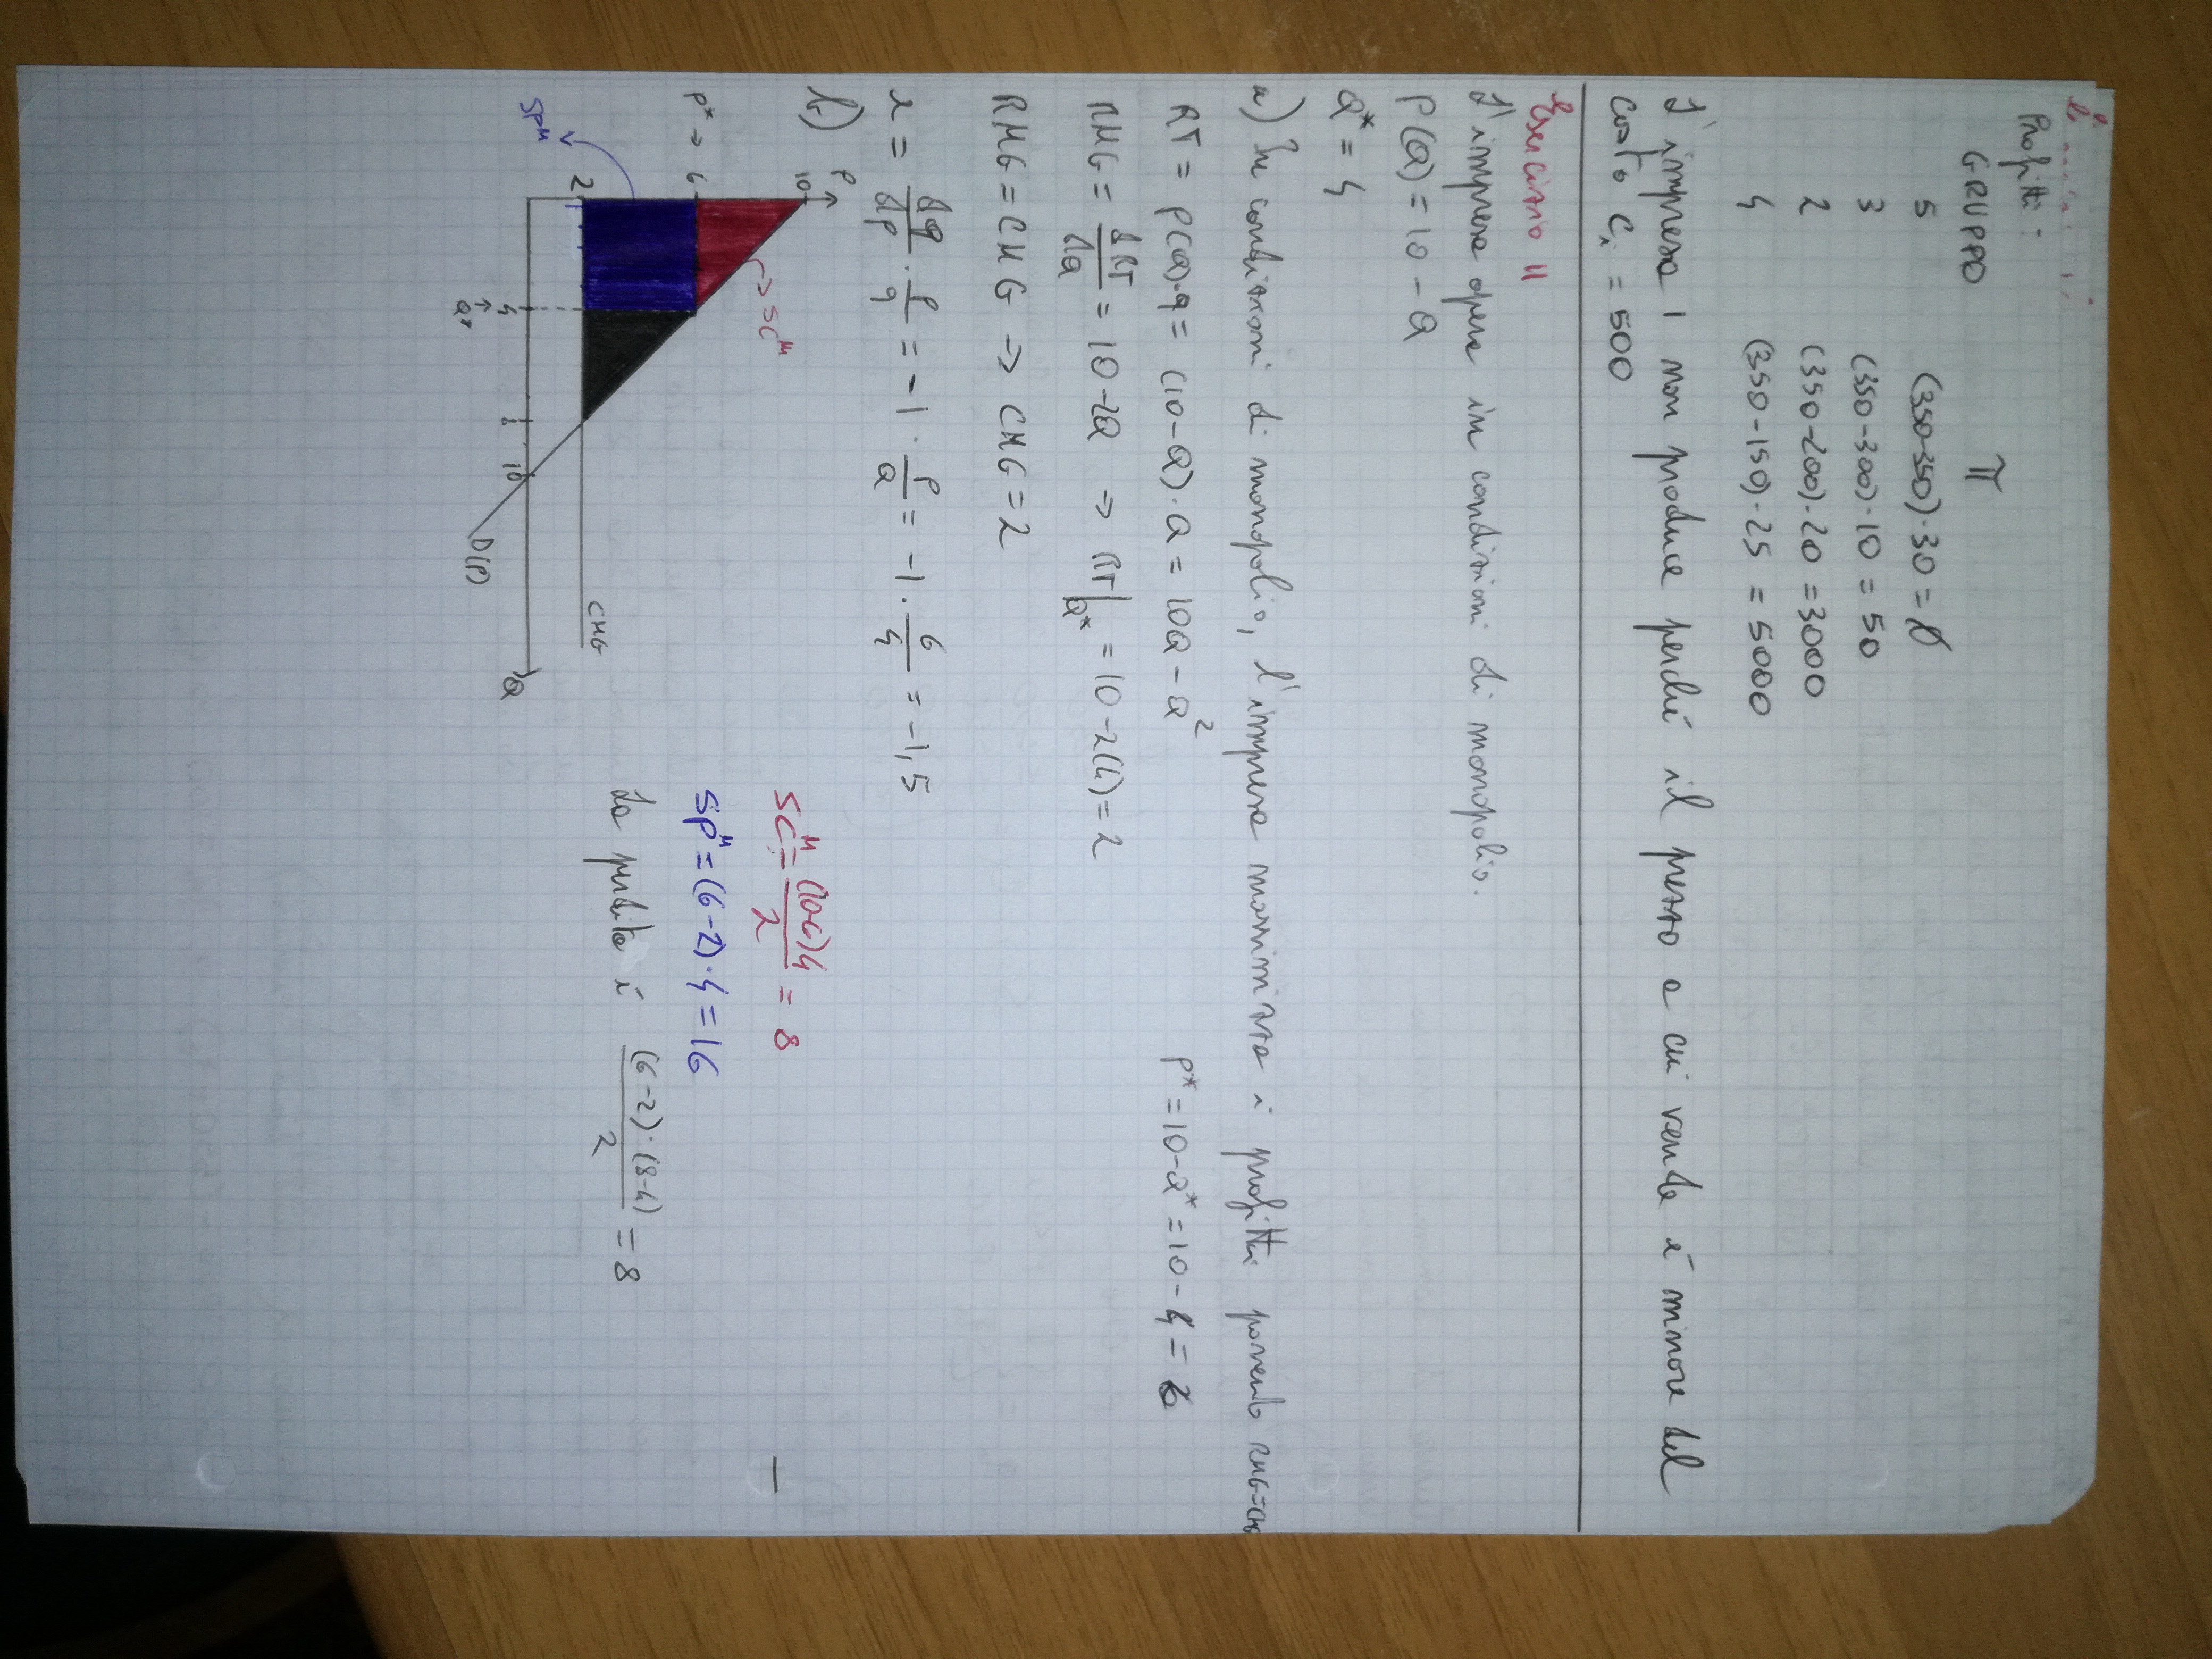 Profitti:
GRUPPO π
5 (350-350)·30 = 0
3 (350-300)·10 = 50
2 (350-200)·20 = 3000
4 (350-150)·25 = 5000
L'impresa 1 non produce perché il prezzo a cui vende é minore del
costo Ci = 500
Esercizio 11
L'impresa opera in condizioni di monopolio.
P(Q) = 10 - Q
Q* = 4
a) In condizioni di monopolio, l'impresa massimizza i profitti ponendo RMG=CMG
RT = P(Q)·q = (10-Q)·Q = 10Q - Q² P* = 10-Q* = 10-4 = 6
RMG = dRT/dQ = 10-2Q → RT|Q* = 10-2(4) = 2
RMG = CMG → CMG = 2
ε = dq/dp · p/q = -1 · P/Q = -1 · 6/4 = -1,5
b) P
10
SCᴹ
P* → 6
2
CMG
SPᴹ
4 8 10 Q
↑
Q*
D(P)
SCᴹ = (10-6)4/2 = 8
SPᴹ = (6-2)·4 = 16
La perdita é (6-2)·(8-4)/2 = 8